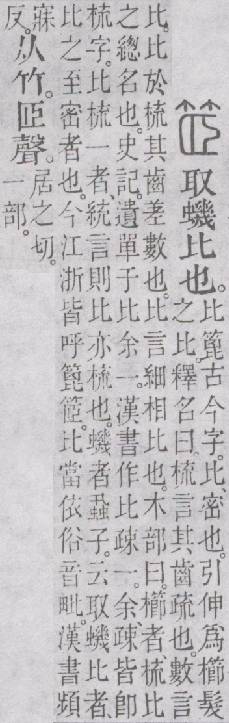 䇫取蟣比也。
比篦古今字。比、密也。引伸爲櫛髮
之比。釋名曰。梳言其齒疏也。數言
比。比於梳其齒差數也。比言細相比也。木部曰。櫛者梳比
之緫名也。史記。遺單于比余一。漢書作比疎一。余疎皆卽
梳字。比梳一者。統言則比亦梳也。蟣者蝨子。云取蟣比者、
比之至密者也。今江浙皆呼篦䇫。比當依俗音毗。漢書頻
寐
反。
从竹𦣞聲。
居之切。
一部。